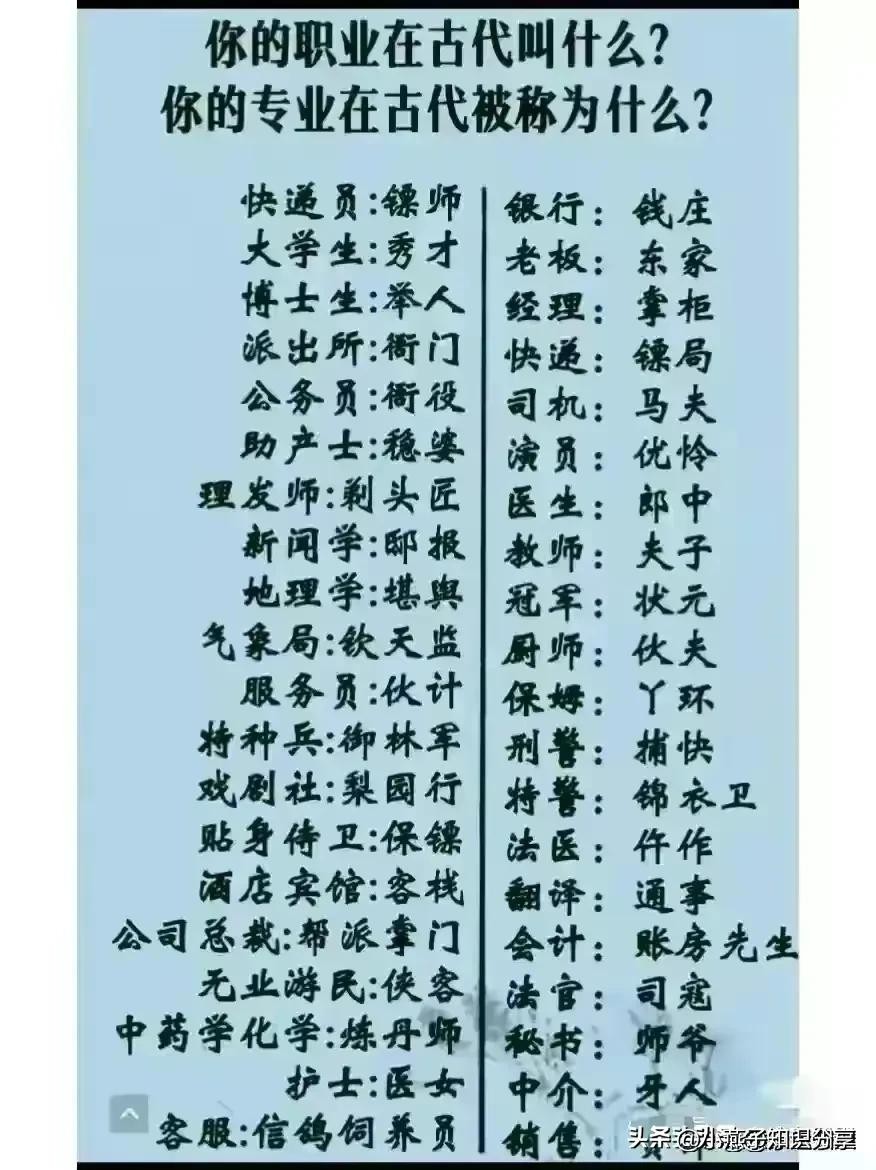 你的职业在古代叫什么?
你的专业在古代被称为什么?
快递员:镖师
大学生:秀才
博士生:举人
派出所:衙门
公务员:衙役
助产士:稳婆
理发师:剃头匠
新闻学:邸报
地理学:堪舆
气象局:钦天监
服务员:伙计
特种兵:御林军
戏剧社:梨园行
贴身侍卫:保镖
酒店宾馆:客栈
公司总裁:帮派掌门
无业游民:侠客
中药学化学:炼丹师
护士:医女
客服:信鸽饲养员
银行:钱庄
老板:东家
经理:掌柜
快递:镖局
司机:马夫
演员:优怜
医生:郎中
教师:夫子
冠军:状元
厨师:伙夫
保姆:丫环
刑警:捕快
特警:锦衣卫
法医:仵作
翻译:通事
会计:账房先生
法官:司寇
秘书:师爷
中介:牙人
销售:
头条
知识分享